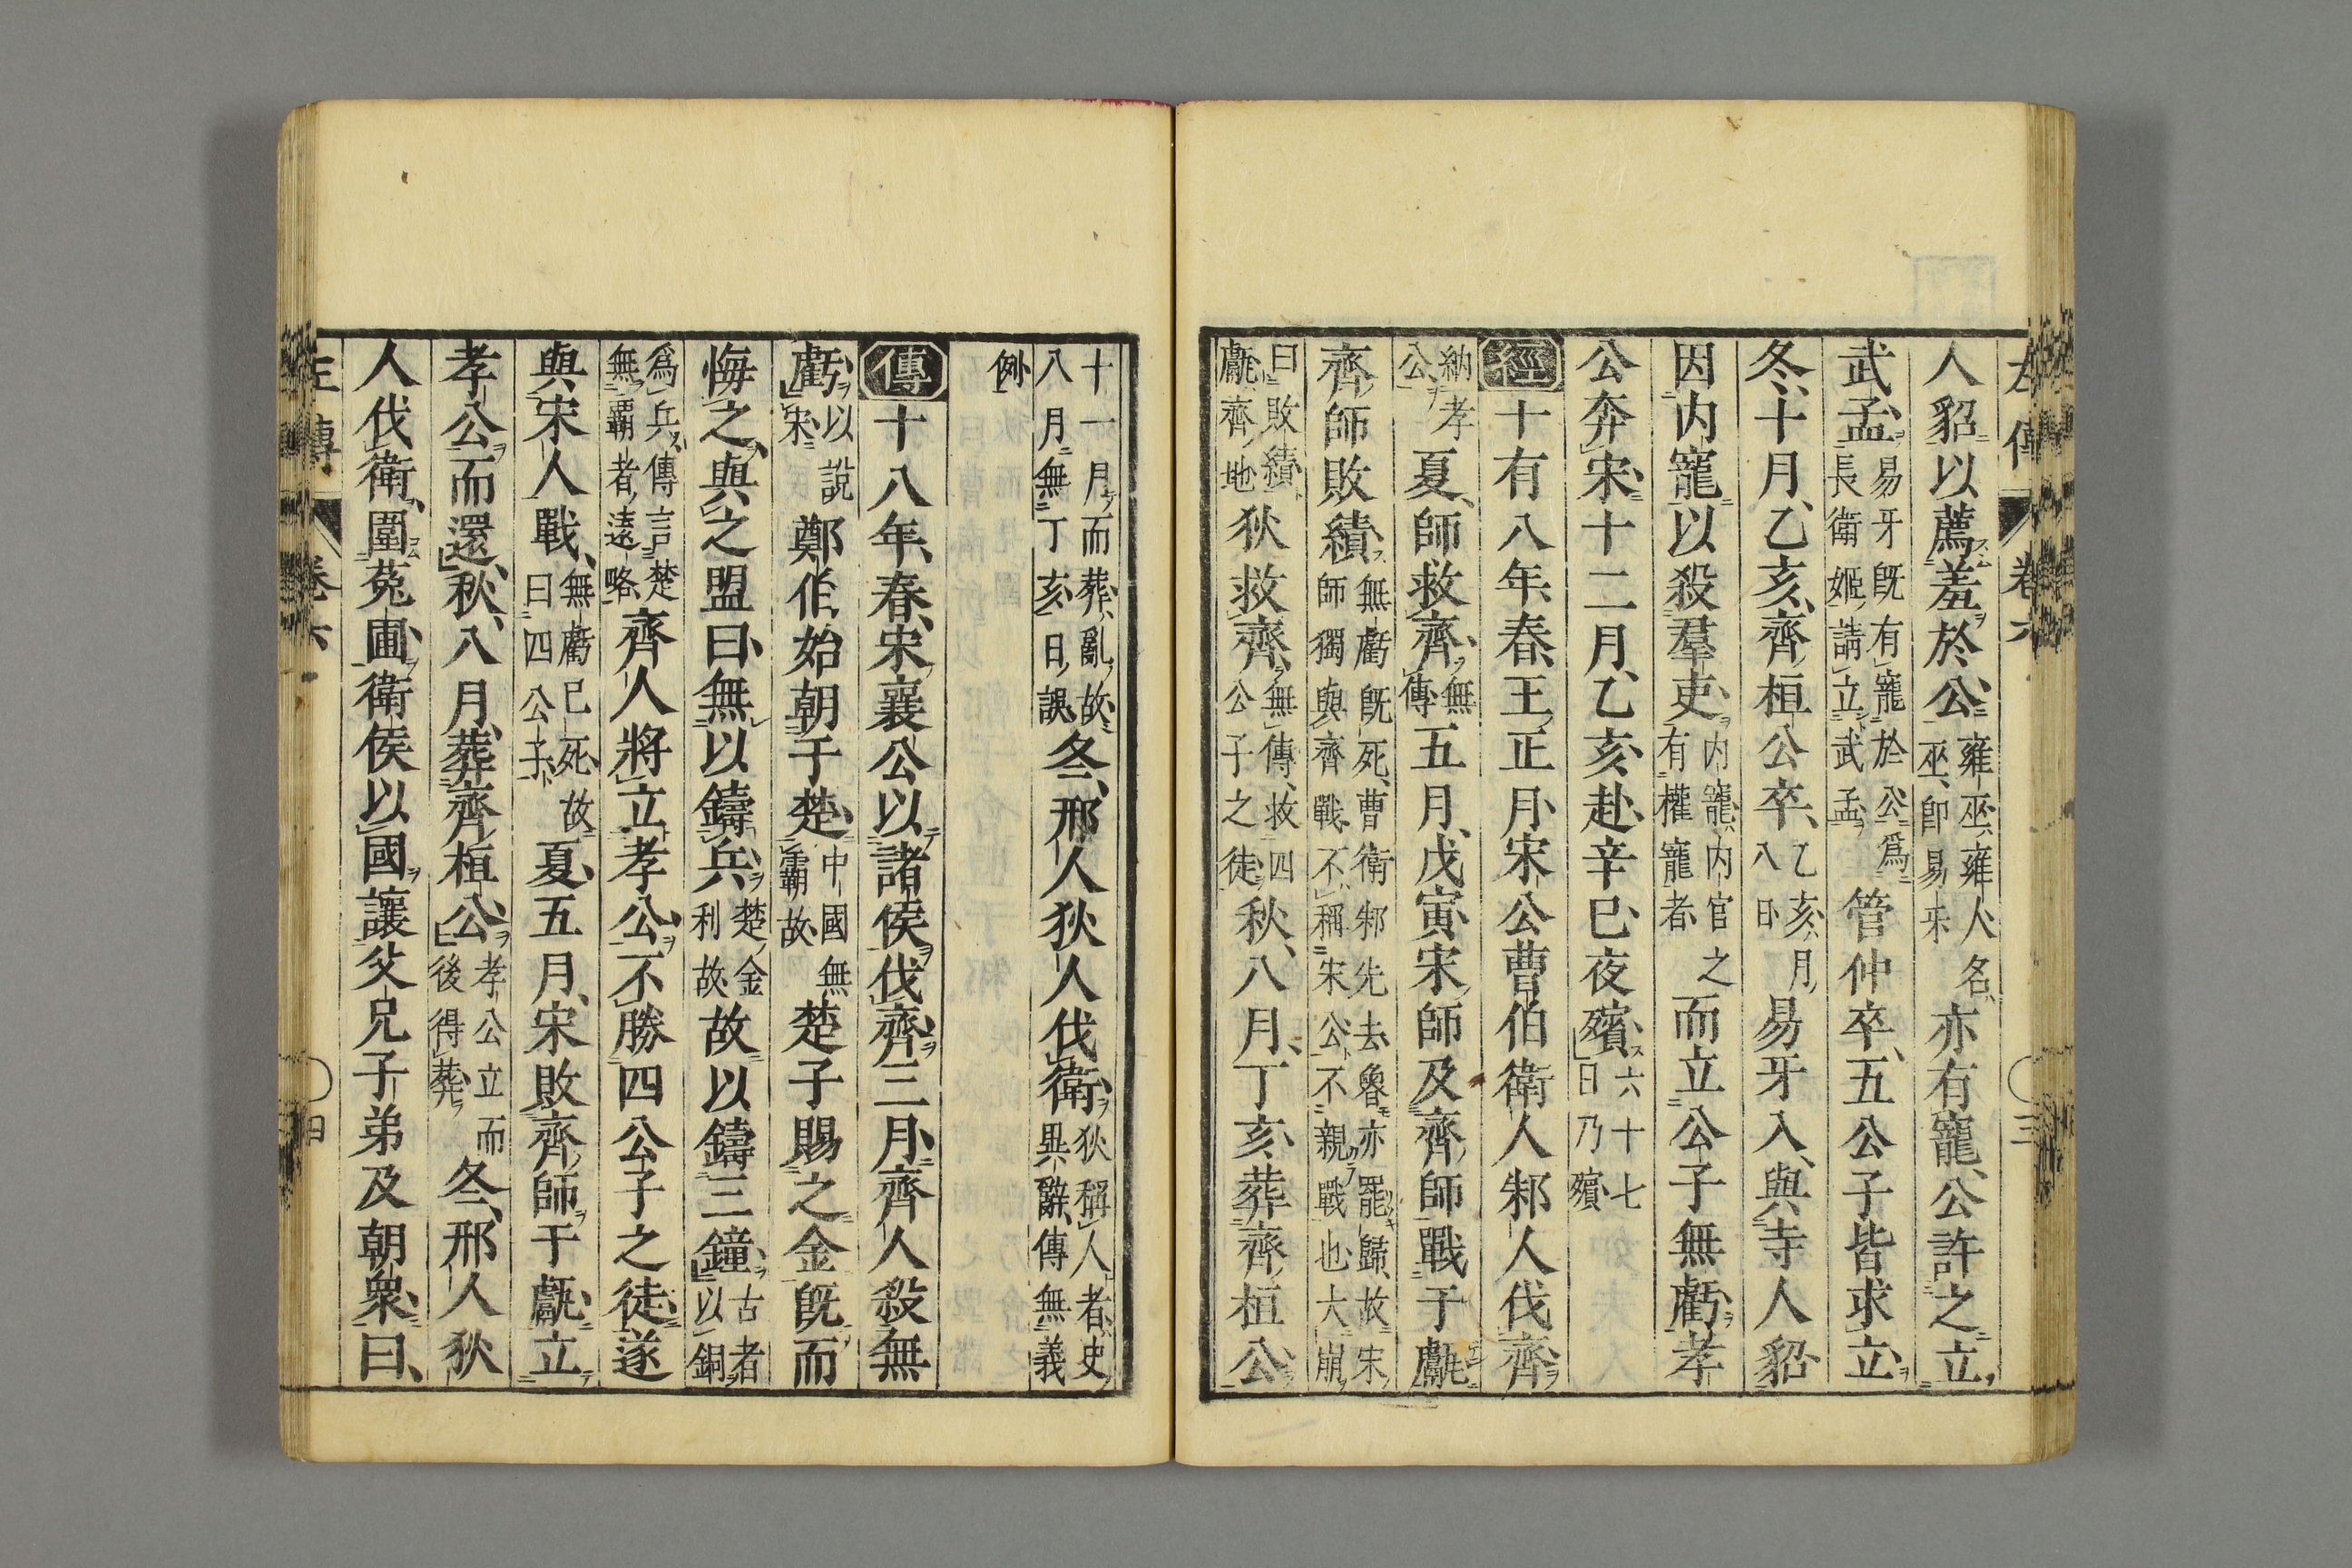 人貂以薦羞於公雍巫雍人名巫即易牙亦有寵公許之立
武孟易牙既有寵於公爲長衛姬請立武孟管仲卒五公子皆求立
冬十月乙亥齊桓公卒乙亥月八日易牙入與寺人貂
因内寵以殺羣吏内寵内官之有權寵者而立公子無虧孝
公奔宋十二月乙亥赴辛巳夜殯六十七日乃殯
經十有八年春王正月宋公曹伯衛人邾人伐齊
納孝公夏師救齊無傳五月戊寅宋師及齊師戰于甗
齊師敗績無虧既死曹衛邾先去魯亦罷歸故宋師獨與齊戰不稱宋公不親戰也大崩
曰敗績甗齊地狄救齊無傳救四公子之徒秋八月丁亥葬齊桓公
十一月而葬亂故八月無丁亥日誤冬邢人狄人伐衛狄稱人者史異辭傳無義
例
傳十八年春宋襄公以諸侯伐齊三月齊人殺無
虧以說宋鄭伯始朝于楚中國無霸故楚子賜之金既而
悔之與之盟曰無以鑄兵楚金利故故以鑄三鐘古者以銅
爲兵傳言楚無霸者遠略齊人將立孝公不勝四公子之徒遂
與宋人戰無虧已死故曰四公子夏五月宋敗齊師于甗立
孝公而還秋八月葬齊桓公孝公立而後得葬冬邢人狄
人伐衛圍菟圃衛侯以國讓父兄子弟及朝衆曰
左傳 卷六